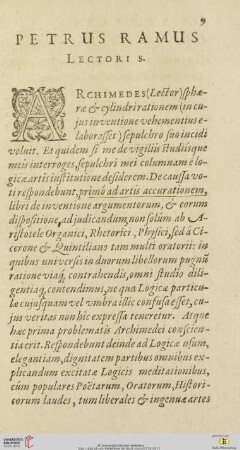 9
PETRUS RAMUS
LECTORI S.
ARCHIMEDES (Lector) sphæ-
ræ & cylindri rationem (in cu-
jus inventione vehementius e-
laborasset) sepulchro suo incidi
voluit. Et quidem si me de vigiliis studiisque
meis interroges, sepulchri mei columnam è lo-
gicæ artis institutione desiderem. De caussa vo-
ti respondebunt, primò ad artis accurationem,
libri de inventione argumentorum, & eorum
dispositione, ad judicandum, non solùm ab A-
ristotele Organici, Rhetorici, Physici, sed à Ci-
cerone & Quintiliano tam multi oratorii: in
quibus universis in duorum libellorum pugnū
ratione viaq́; contrahendis, omni studio dili-
gentiaq́; contendimus, ne qua Logicæ particu-
la ejusquam vel umbra illic confusa esset, cu-
jus veritas non hic expressa teneretur. Atque
hæc prima problematis Archimedei conscien-
tia erit. Respondebunt deinde ad Logicæ usum,
elegantiam, dignitatem partibus omnibus ex-
plicandum excitatæ Logicis meditationibus,
cùm populares Poëtarum, Oratorum, Histori-
corum laudes, tum liberales & ingenuæ artes